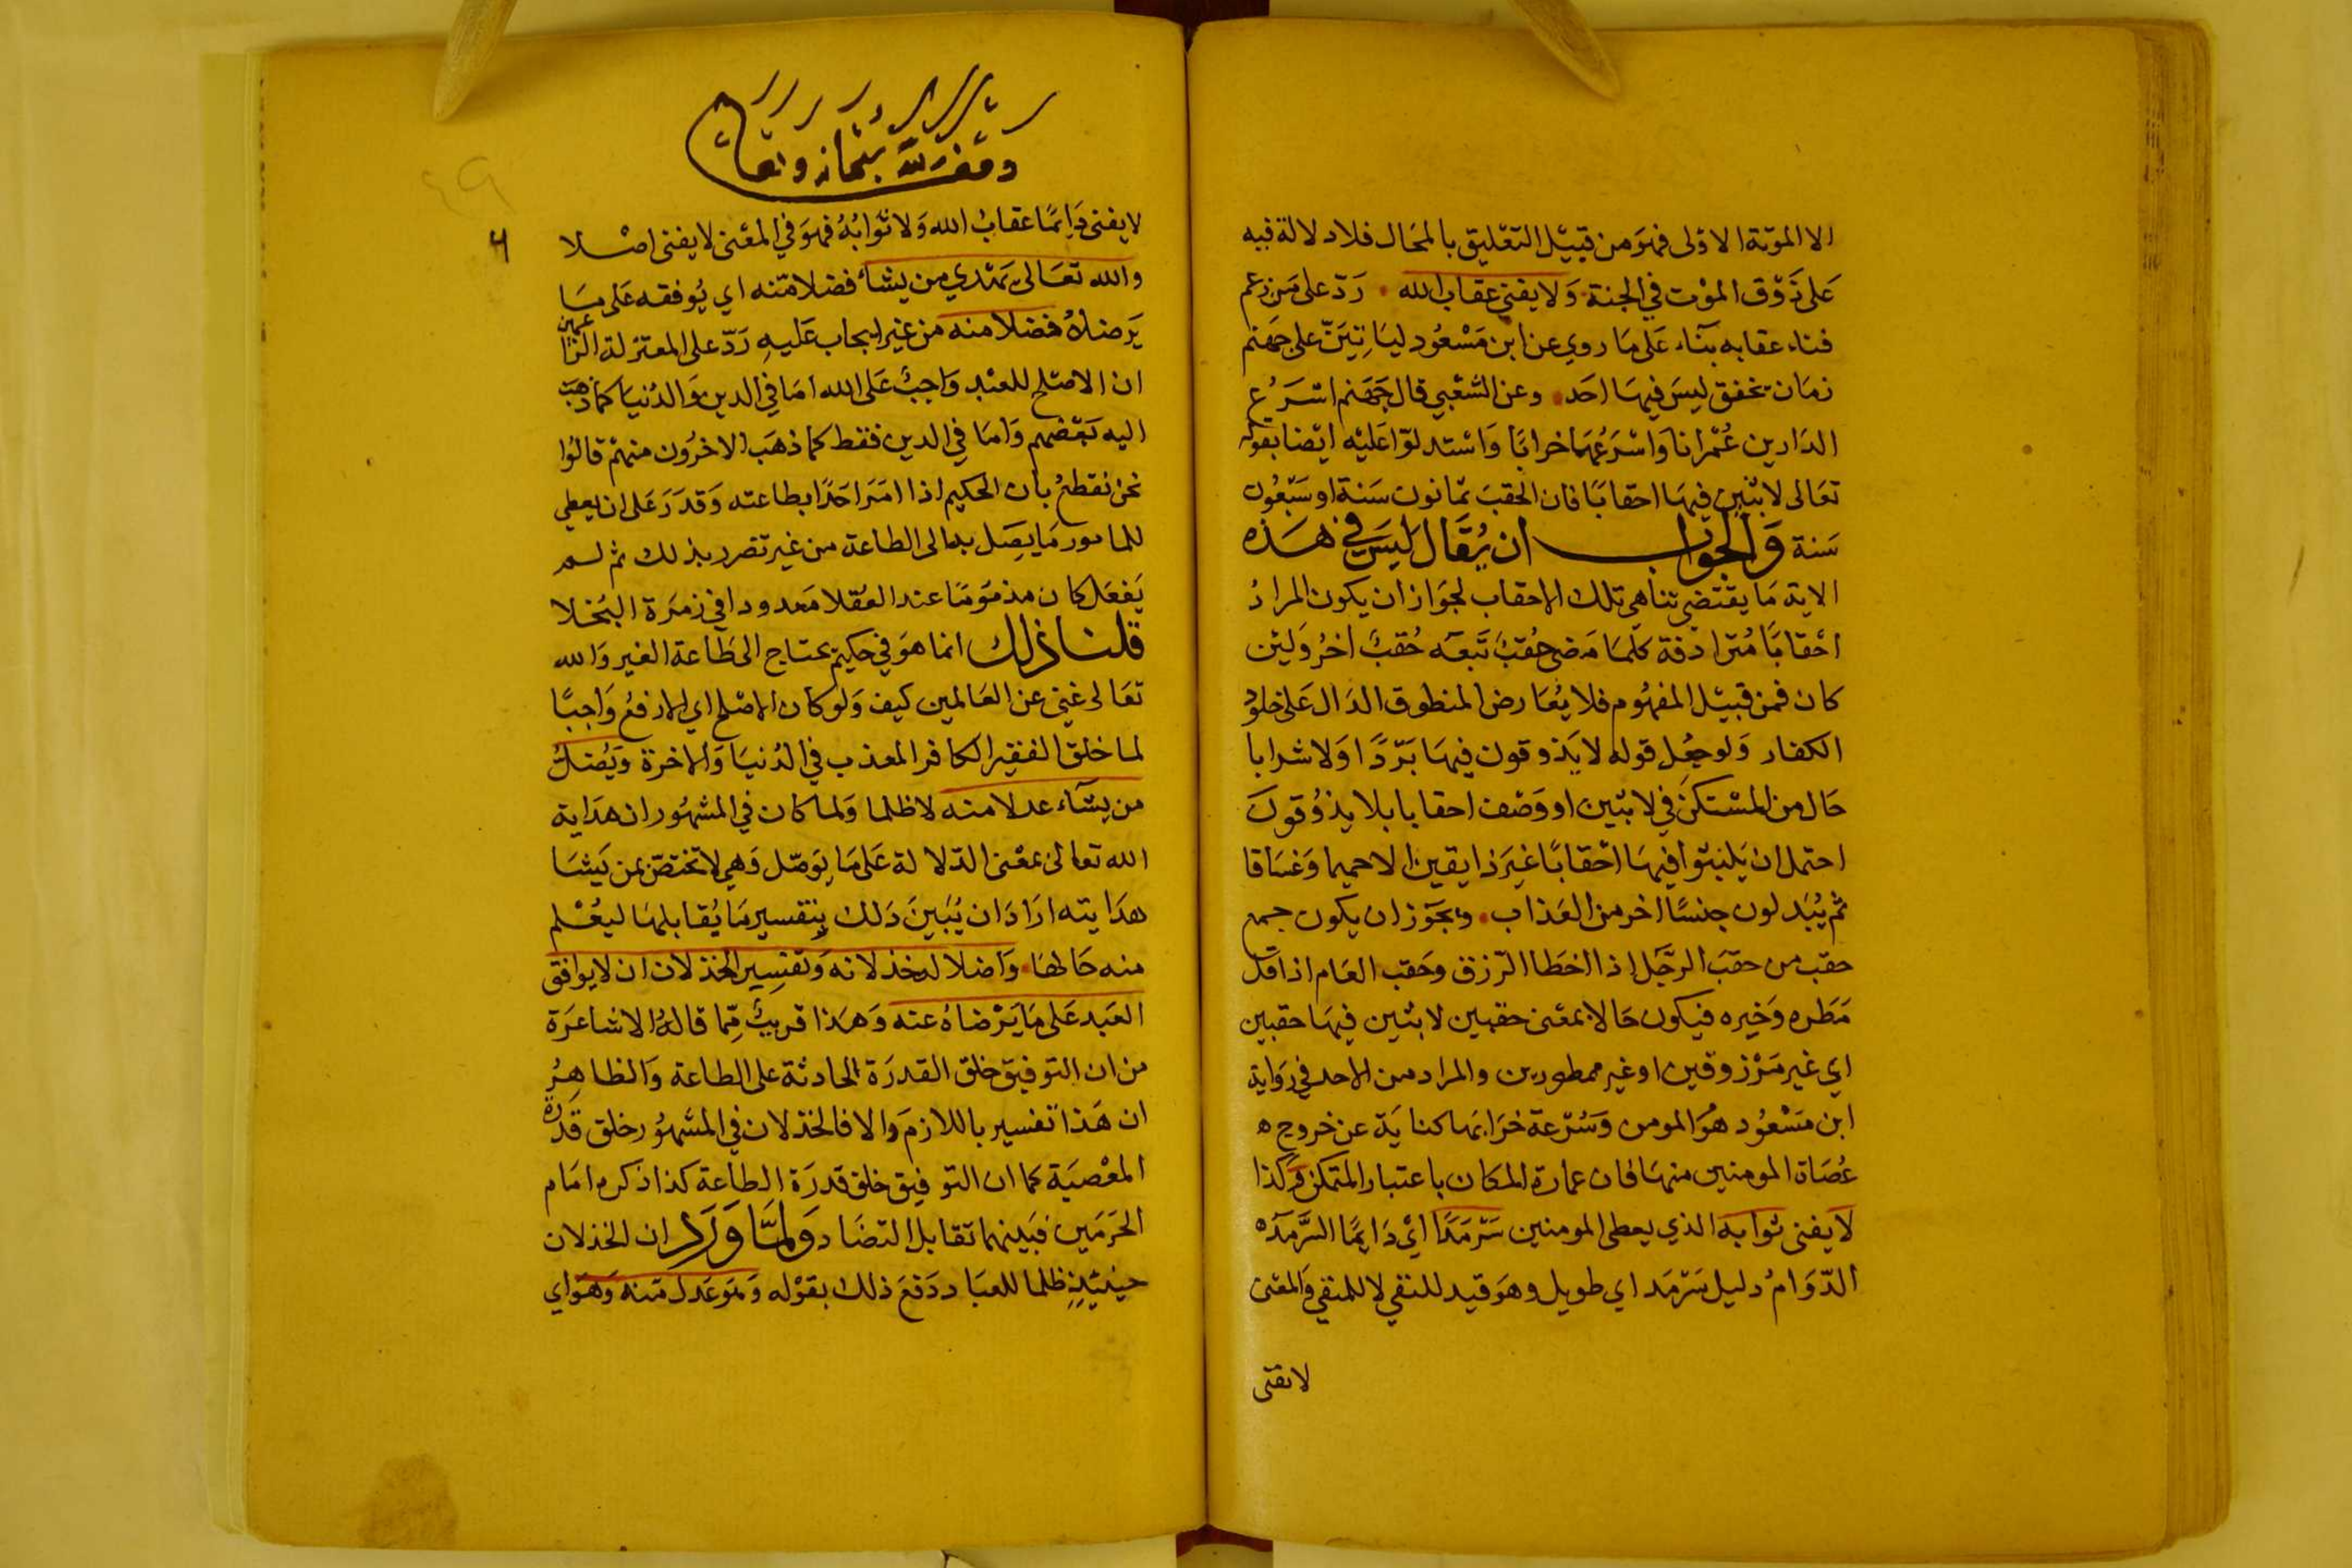 الا الموتة الاولى فهو من قبيل التعليق بالمحال فلا دلالة فيه
على ذوق الموت في الجنة ولا يفنى عقاب الله رد على من زعم
فناء عقابه بناء على ما روي عن ابن مسعود لياتين على جهنم
زمان تخفق ليس فيها احد وعن الشعبي قال جهنم اسرع
الدارين عمرانا واسرعهما خرابا واستدلوا عليه ايضا بقوله
تعالى لابثين فيها احقابا فان الحقب ثمانون سنة او سبعون
سنة والجواب ان يقال ليس في هذه
الاية ما يقتضي تناهي تلك الاحقاب لجواز ان يكون المراد
احقابا مترادفة كلما مضى حقب تبعه حقب اخر ولئن
كان فمن قبيل المفهوم فلا يعارض المنطوق الدال على خلود
الكفار ولو جعل قوله لا يذوقون فيها بردا ولا شرابا
حال من المستكن في لابثين او وصف احقابا بلا يذوقون
احتمل ان يلبثوا فيها احقابا غير ذايقين الا حميما وغساقا
ثم يبدلون جنسا اخر من العذاب ويجوز ان يكون جمع
حقب من حقب الرجل اذا اخطا الرزق وحقب العام اذا قل
مطره وخيره فيكون حالا بمعنى حقبين لابثين فيها حقبين
اي غير مرزوقين او غير ممطورين والمراد من الاحد في رواية
ابن مسعود هو المومن وسرعة خرابها كناية عن خروج
عصاة المومنين منها فان عمارة المكان باعتبار المتمكن وكذا
لا يفنى ثوابه الذي يعطى المومنين سرمدا اي دايما السرمده
الدوام دليل سرمد اي طويل وهو قيد للنفي لا للمنفي والمعنى
لا يفنى
وقف لله
لا يفنى دايما عقاب الله ولا ثوابه فهو في المعنى لا يفنى اصلا
والله تعالى يهدي من يشاء فضلا منه اي يوفقه على ما
يرضاه فضلا منه من غير ايجاب عليه رد على المعتزلة الزاعمين
ان الاصلح للعبد واجب على الله اما في الدين والدنيا كما ذهب
اليه بعضهم واما في الدين فقط كما ذهب الاخرون منهم قالوا
نحن نقطع بان الحكيم اذا امر احدا بطاعته وقدر على ان يعطي
للمامور ما يصل به الى الطاعة من غير تضرر بذلك ثم لم
يفعل كان مذموما عند العقلا معدودا في زمرة البخلا
قلنا ذلك انما هو في حكيم يحتاج الى طاعة الغير والله
تعالى غني عن العالمين كيف ولو كان الاصلح اي الارفع واجبا
لما خلق الفقير الكافر المعذب في الدنيا والاخرة ويضل
من يشاء عدلا منه لا ظلما ولما كان في المشهور ان هداية
الله تعالى بمعنى الدلالة على ما يوصل وهي لا تختص بمن يشا
هدايته اراد ان يبين ذلك بتفسير ما يقابلها ليعلم
منه حالها واضلاله خذلانه وتفسير الخذلان ان لا يوافق
العبد على ما يرضاه عنه وهذا قريب مما قاله الاشاعرة
من ان التوفيق خلق القدرة الحادثة على الطاعة والظاهر
ان هذا تفسير باللازم والا فالخذلان في المشهور خلق قدرة
المعصية كما ان التوفيق خلق قدرة الطاعة كذا ذكره امام
الحرمين فبينهما تقابل التضاد ولما ورد ان الخذلان
حينئذ ظلما للعباد دفع ذلك بقوله وهو عدل منه وهو اي